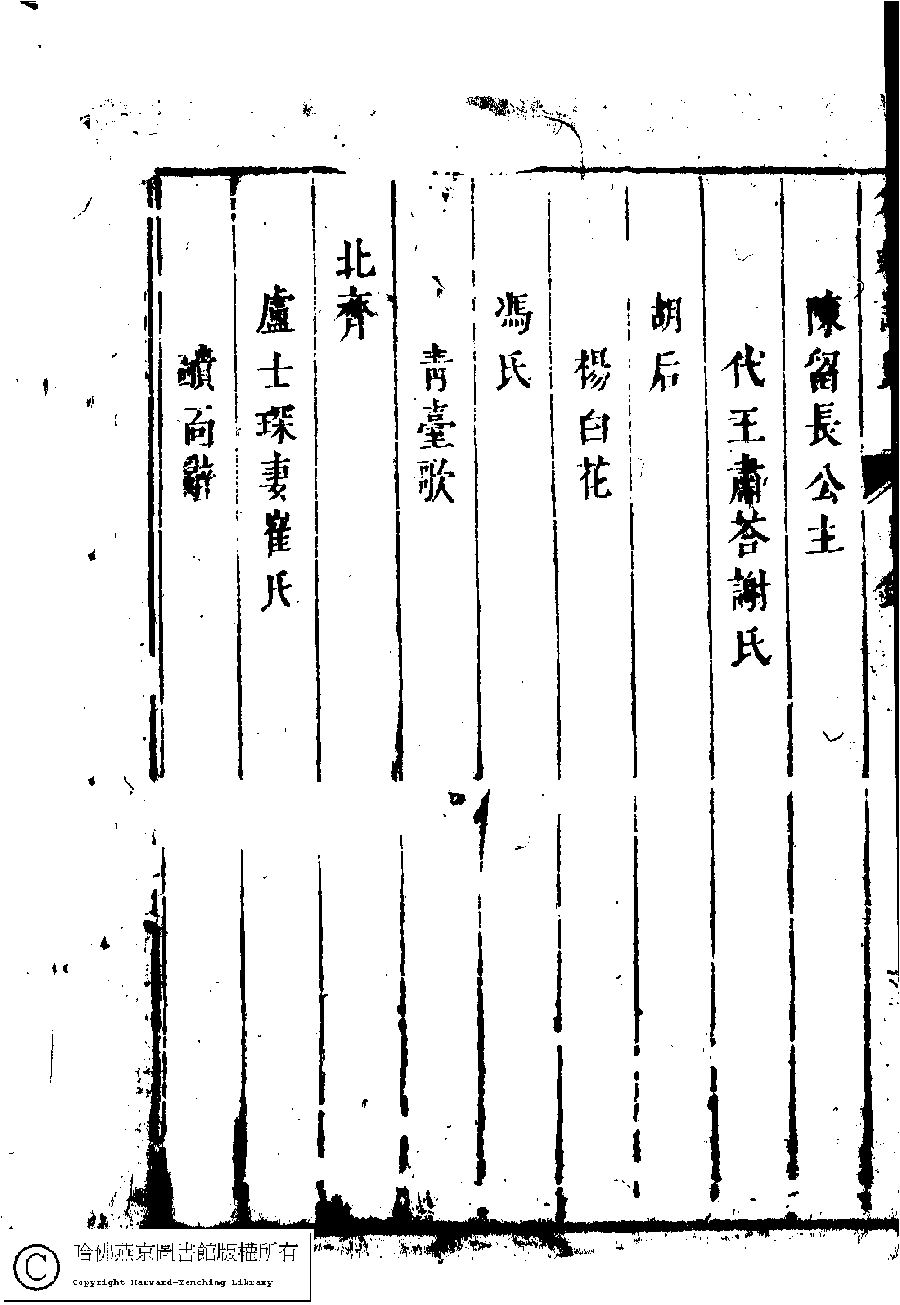 陳留長公主
代王肅荅謝氏
胡后
楊白花
馮氏
青臺歌
北齊
盧士琛妻崔氏
靧面辭
哈佛燕京圖書館版權所有
Copyright Harvard-Yenching Library